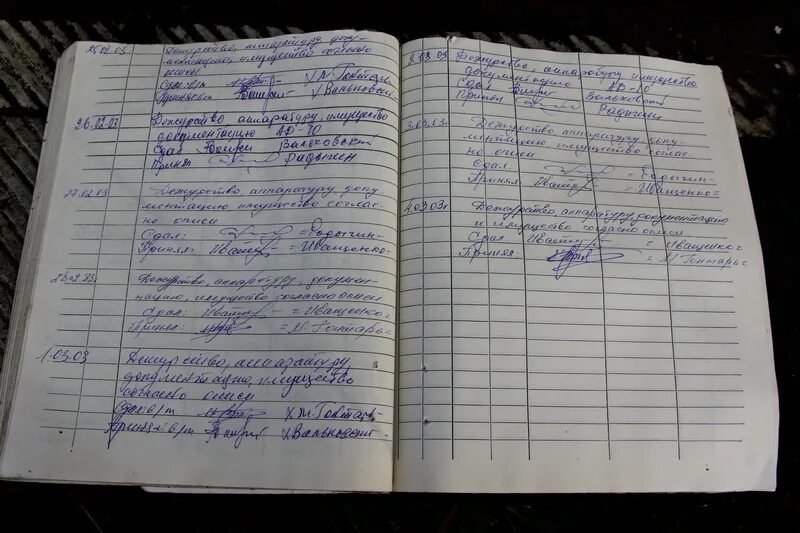 25.02.03 Дежурство, аппаратуру, доку-
ментацию, имущество согласно
описи
Сдал в/т х М. Гонтарь
Принял в/т х Вальковский
26.02.03 Дежурство аппаратуру, имущество
документацию АД-10
Сдал Вальковский
Принял Радыгин
27.02.03 Дежурство, аппаратуру, доку-
ментацию имущество соглас-
но описи
Сдал: =Радыгин=
Принял: =Иващенко=
28.02.03 Дежурство, аппаратуру, докумен-
тацию, имущество согласно описи
Сдал: =Иващенко=
Принял: =М. Гонтарь=
1.03.03 Дежурство, аппаратуру
документацию, имущество
согласно описи
Сдал в/т х М. Гонтарь
Принял в/т х Вальковский
2.03.03 Дежурство, аппаратуру имущество
документацию АД-10
Сдал Вальковский
Принял Радыгин
3.03.03г. Дежурство, аппаратуру, доку-
ментацию имущество соглас-
но описи
Сдал: =Радыгин=
Принял: =Иващенко=
4.03.03г Дежурство, аппаратуру, документацию
и имущество согласно описи
Сдал =Иващенко=
Принял: =М. Гонтарь=